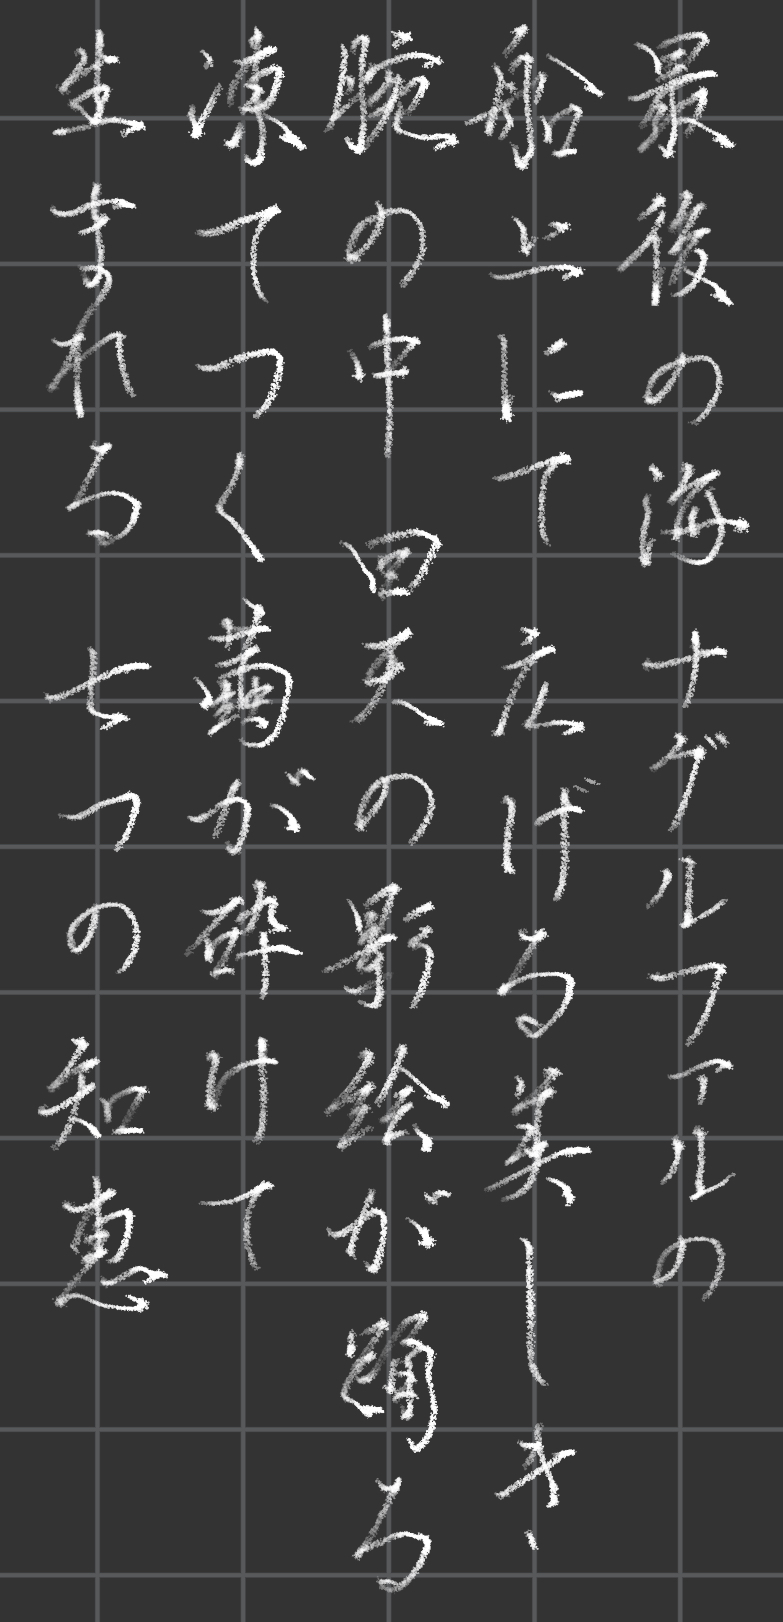 最後の海ナグルファルの
船上にて広げる美しき、
腕の中回天の影絵が踊る
凍てつく繭が砕けて
生まれる七つの知恵